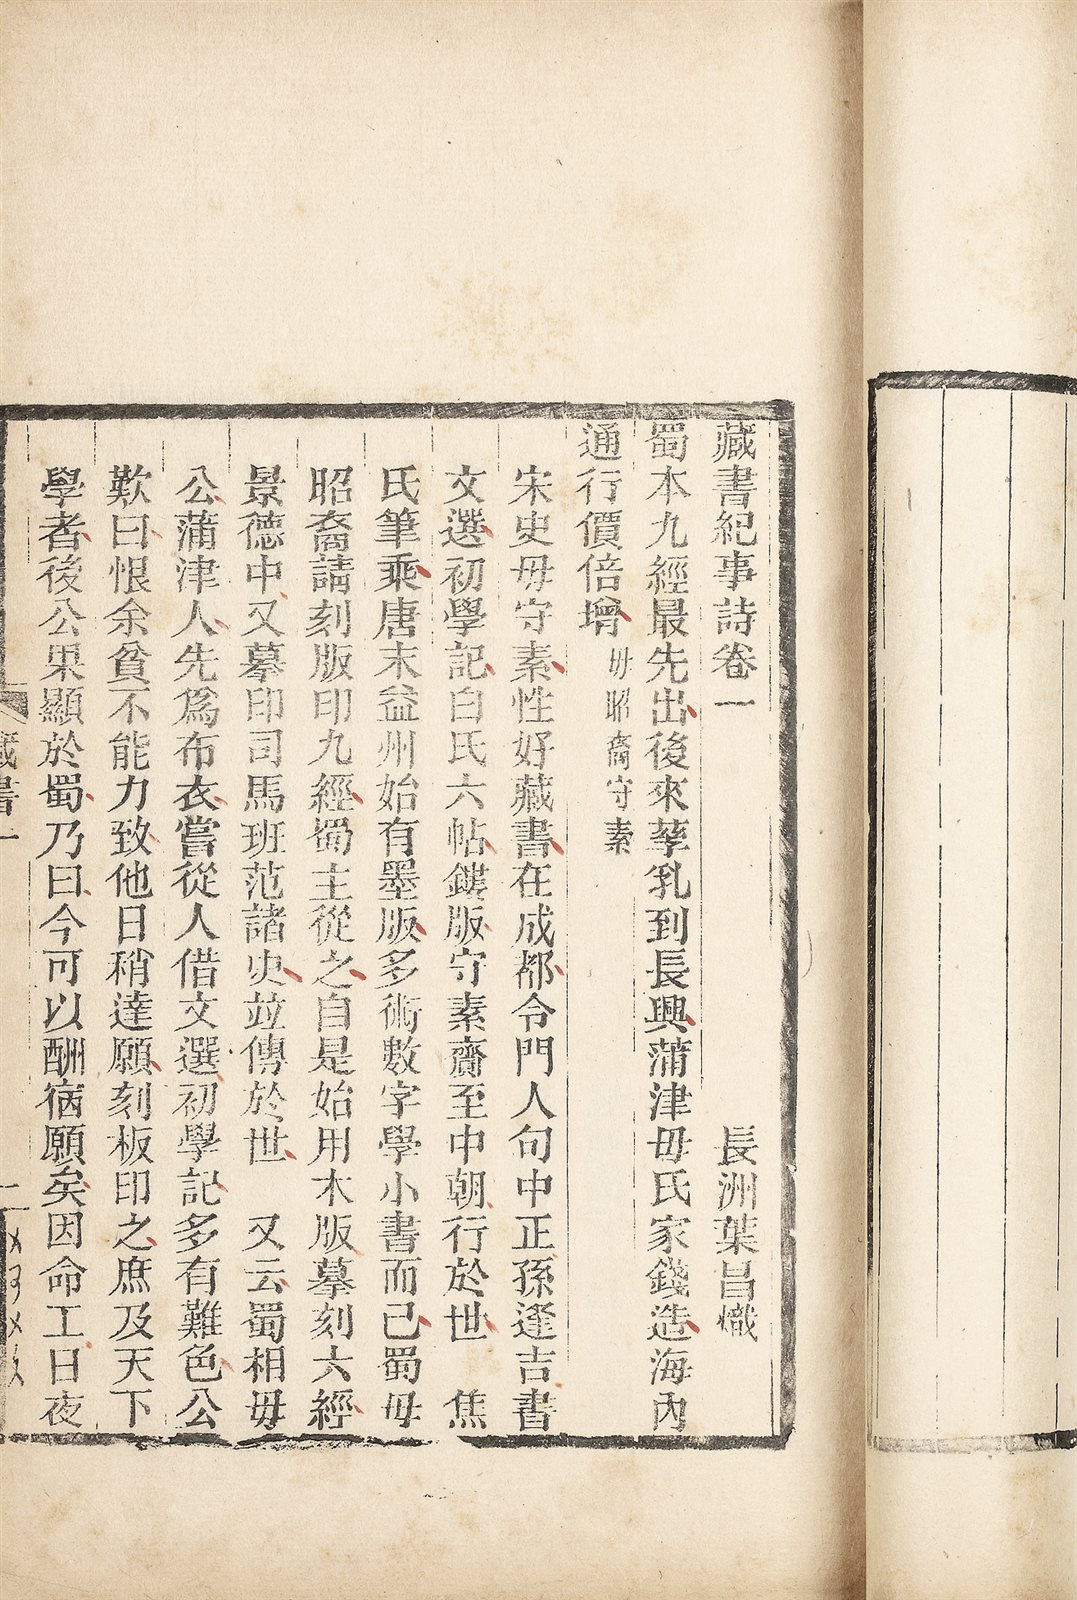 藏書紀事詩卷一
長洲葉昌熾
蜀本九經最先出後來孳乳到長興蒲津毋氏家錢造海內
通行價倍增毋昭裔守素
宋史毋守素性好藏書在成都令門人句中正孫逢吉書
文選初學記白氏六帖鏤版守素齎至中朝行於世　焦
氏筆乘唐末益州始有墨版多術數字學小書而已蜀毋
昭裔請刻版印九經蜀主從之自是始用木版摹刻六經
景德中又摹印司馬班范諸史竝傳於世　又云蜀相毋
公蒲津人先爲布衣嘗從人借文選初學記多有難色公
歎曰恨余貧不能力致他日稍達願刻板印之庶及天下
學者後公果顯於蜀乃曰今可以酬宿願矣因命工日夜
藏書一
一